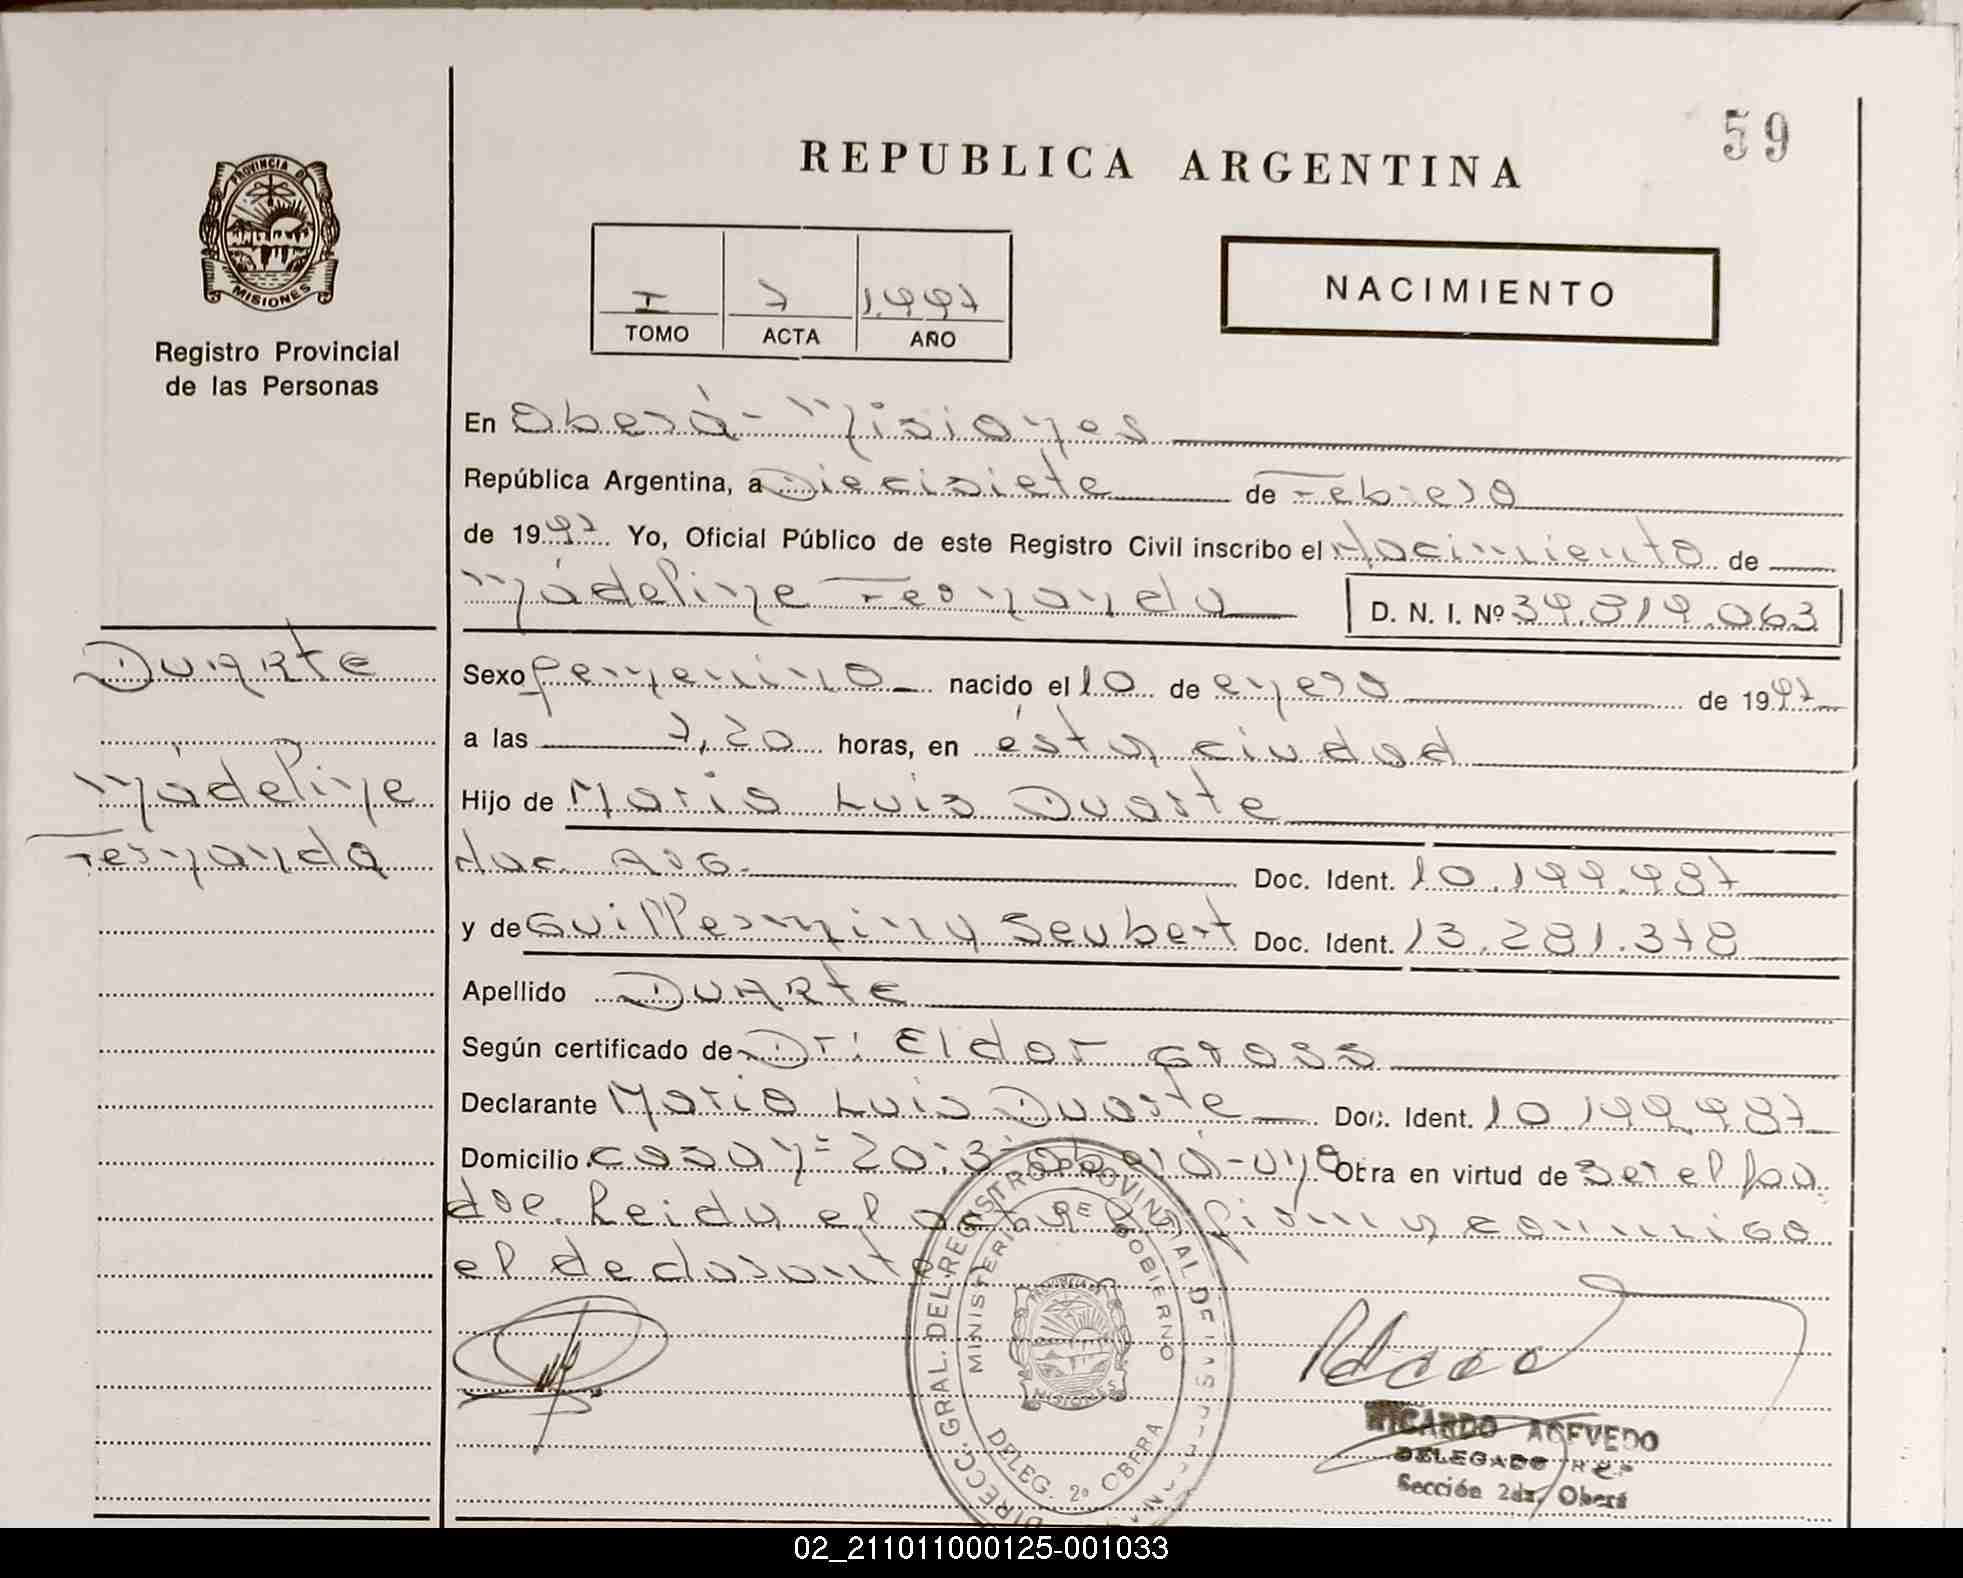 59
REPUBLICA ARGENTINA
PROVINCIA DE
MISIONES
Registro Provincial
de las Personas
I 7 1.997
TOMO ACTA AÑO
NACIMIENTO
En Oberá - Misiones
República Argentina, a Diecisiete de Febrero
de 1997 Yo, Oficial Público de este Registro Civil inscribo el Nacimiento de
Mádeline Fernanda D. N. I. Nº 39.819.063
Duarte
Mádeline
Fernanda
Sexo femenino nacido el 10 de enero de 1997
a las 7,20 horas, en ésta ciudad
Hijo de Mario Luis Duarte
nac. Arg. Doc. Ident. 10.199.987
y de Guillermina Seubert Doc. Ident. 13.281.378
Apellido DUARTE
Según certificado de Dr: Eldor Gross
Declarante Mario Luis Duarte Doc. Ident. 10.199.987
Domicilio casa nº 20:3-Oberá-Mnes Obra en virtud de ser el pa
dre. Leida el acta la firma conmigo
el declarante
DIRECC. GRAL. DEL REGISTRO PROVINCIAL DE LAS PERSONAS
MINISTERIO DE GOBIERNO
PROVINCIA DE
MISIONES
DELEG. 2º OBERA
RICARDO ACEVEDO
DELEGADO R.C.P
Sección 2da, Oberá
02_211011000125-001033